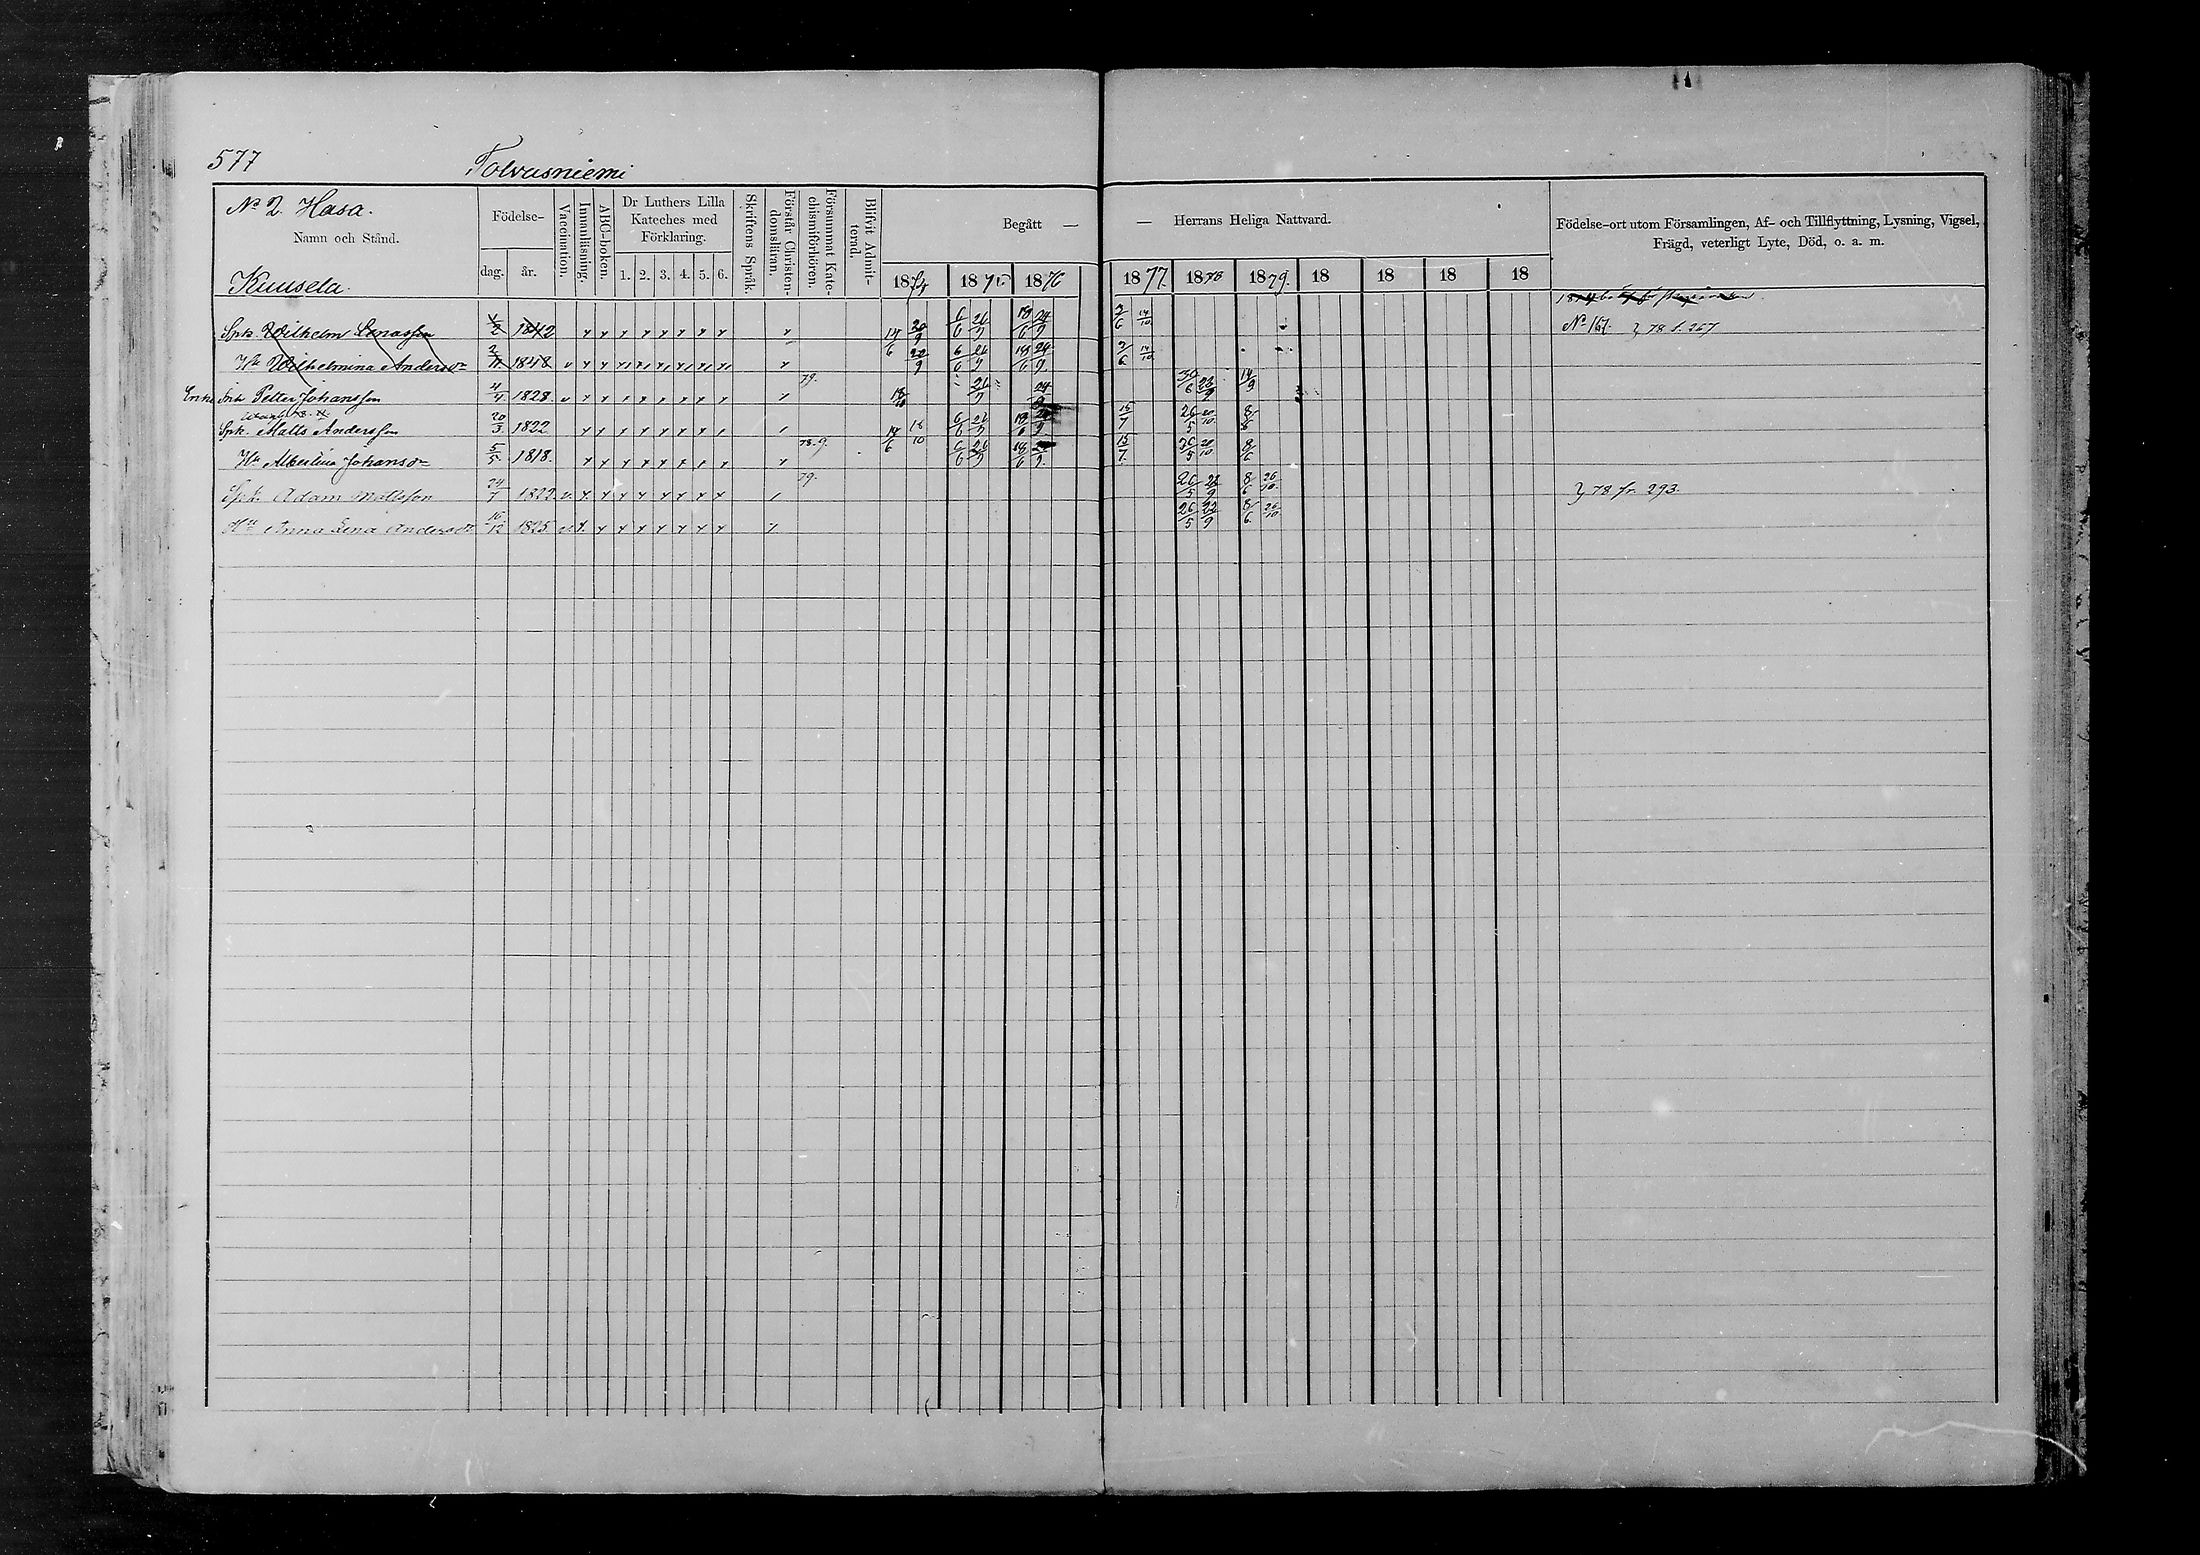 577 Tolvusniemi
No 2. Hasa.
Namn och Stånd.
Födelse-
dag. år.
Vaccination.
Innanläsning.
ABC-boken.
Dr Luthers Lilla
Kateches med
Förklaring.
1. 2. 3. 4. 5. 6.
Skriftens Språk.
Förstår Christen-
domsläran.
Försummat Kate-
chismiförhören.
Blifvit Admit-
terad.
Begått — — Herrans Heliga Nattvard.
1874 1875 1876 1877. 1878 1879. 18 18 18 18
Födelse-ort utom Församlingen, Af- och Tillflyttning, Lysning, Vigsel,
Frägd, veterligt Lyte, Död, o. a. m.
Kuusela.
Spk. Wilhelm 1/2 1842 20/9 6/6 26/9 18/6 24/9 3/6 14/10 No 167. 78 f. 267
Hu Wilhelmina Andersdr 1848 v 20/9 6/6 26/9 18/6 24/9 3/6 14/10
Petter Johansson 4/4 1828 v 79. 26/9 24/9 30/6 14/9
Spk. Matts Andersson 20/3 1822 6/6 26/9 18/6 15/7 26/5 20/10 8/6
Hu Albertina Johansdr 5/5 1818. 78-9. 6/6 26/9 18/6 15/7 26/5 20/10 8/6
Spk. Adam Mattsson 24/7 1822 v. 79. 26/5 22/9 8/6 26/10 78 fr. 293.
Hu Anna Lena Andersdr 16/12 1825 v. 26/5 22/9 8/6 26/10